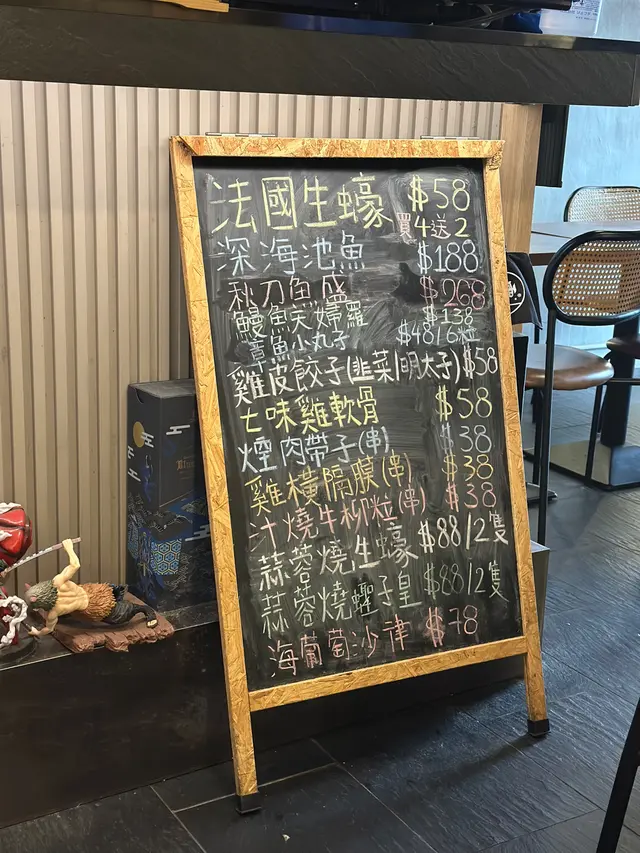 法國生蠔 $58
買4送2
深海池魚 $188
秋刀魚 盛 $268
鰻魚天婦羅 $138
章魚小丸子 $48/6粒
雞皮餃子(韭菜/明太子) $58
七味雞軟骨 $58
煙肉帶子(串) $38
雞橫隔膜(串) $38
汁燒牛柳粒(串) $38
蒜蓉燒生蠔 $88/2隻
蒜蓉燒蟶子皇 $88/2隻
海葡萄沙律 $78